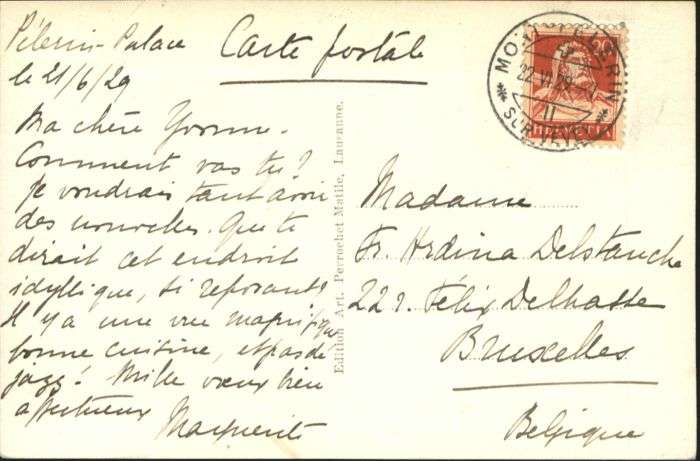 Pélerin-Palace
le 21/6/29
Carte postale
Ma chère Yvonne.
Comment vas tu?
Je voudrais tant avoir
des nouvelles. Que te
dirait cet endroit
idyllique, si reposant?
Il y a une vue magnifique
bonne cuisine, et pas de
jazz! Mille vœux bien
affectueux
Marguerite
Edition Art. Perrochet Matile, Lausanne.
20
HELVETIA
22.VI.29
II
SUR VEVEY
Madame
Fr. Ardina Delstanche
22 r. Félix Delhasse
Bruxelles
Belgique